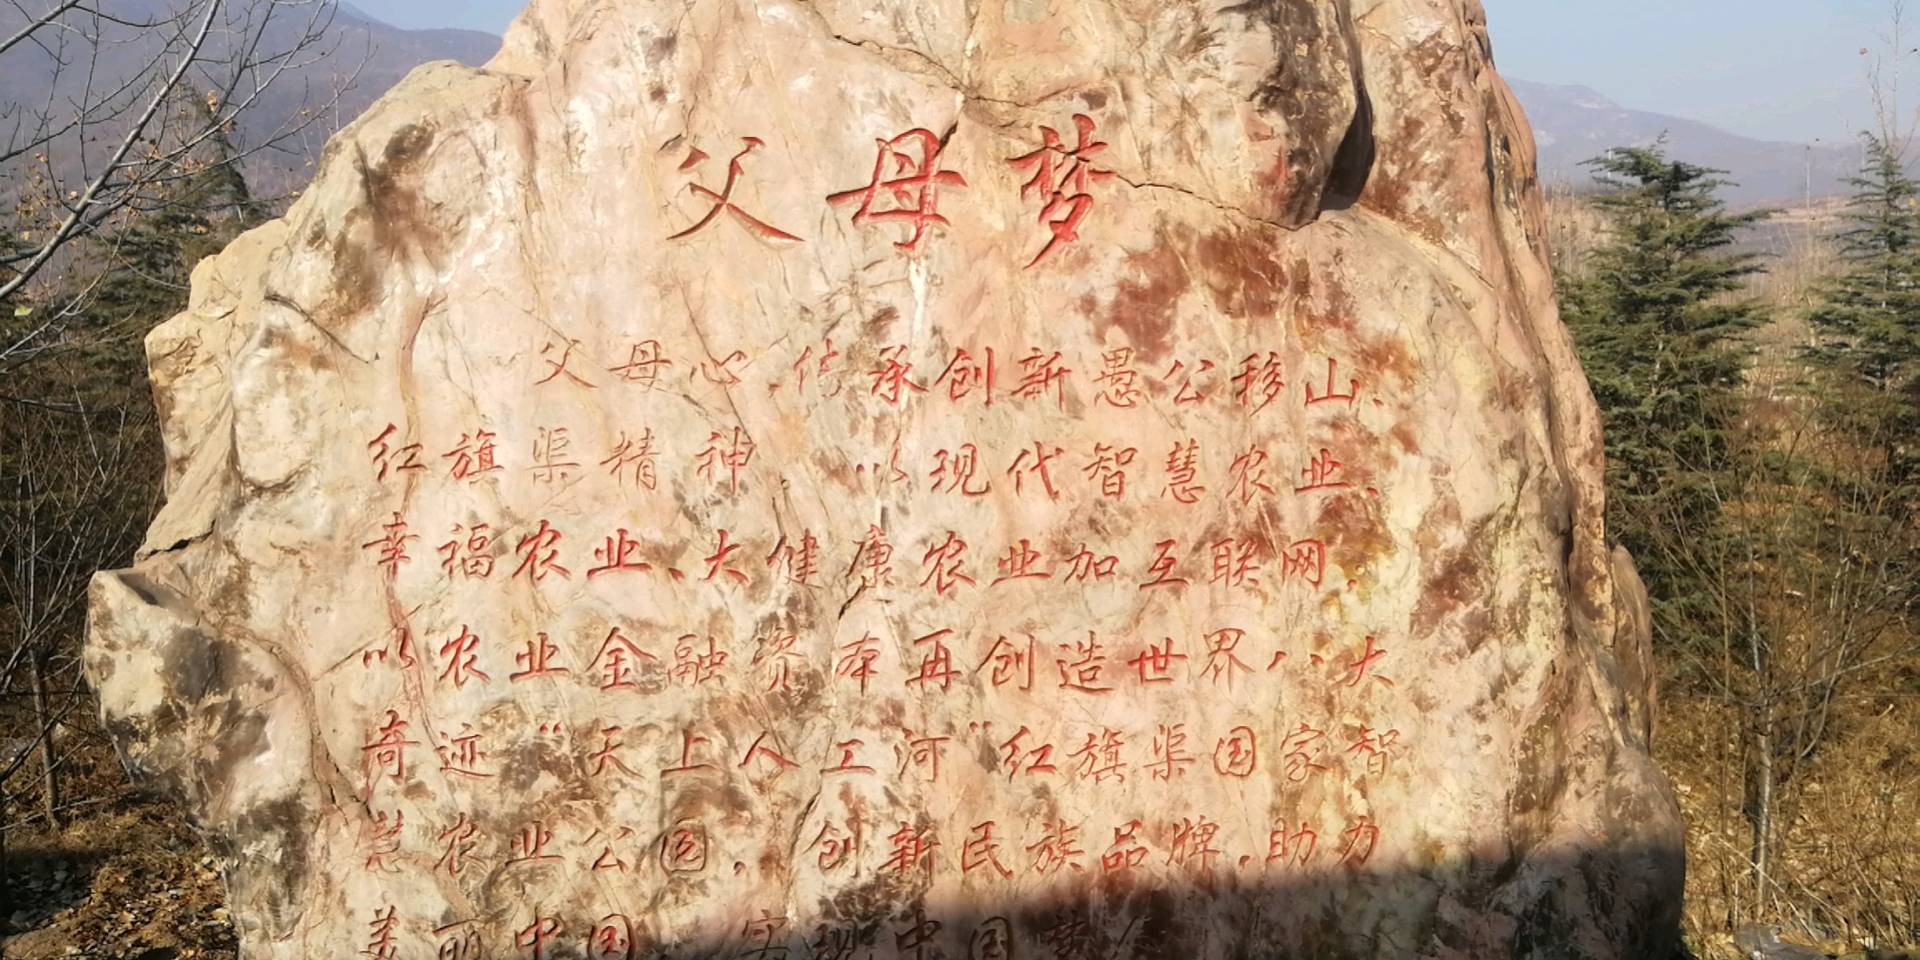 父母梦
父母心,传承创新愚公移山、
红旗渠精神 以现代智慧农业、
幸福农业、大健康农业加互联网,
以农业金融资本再创造世界八大
奇迹“天上人工河”红旗渠国家智
慧农业公园,创新民族品牌,助力
美丽中国,实现中国梦